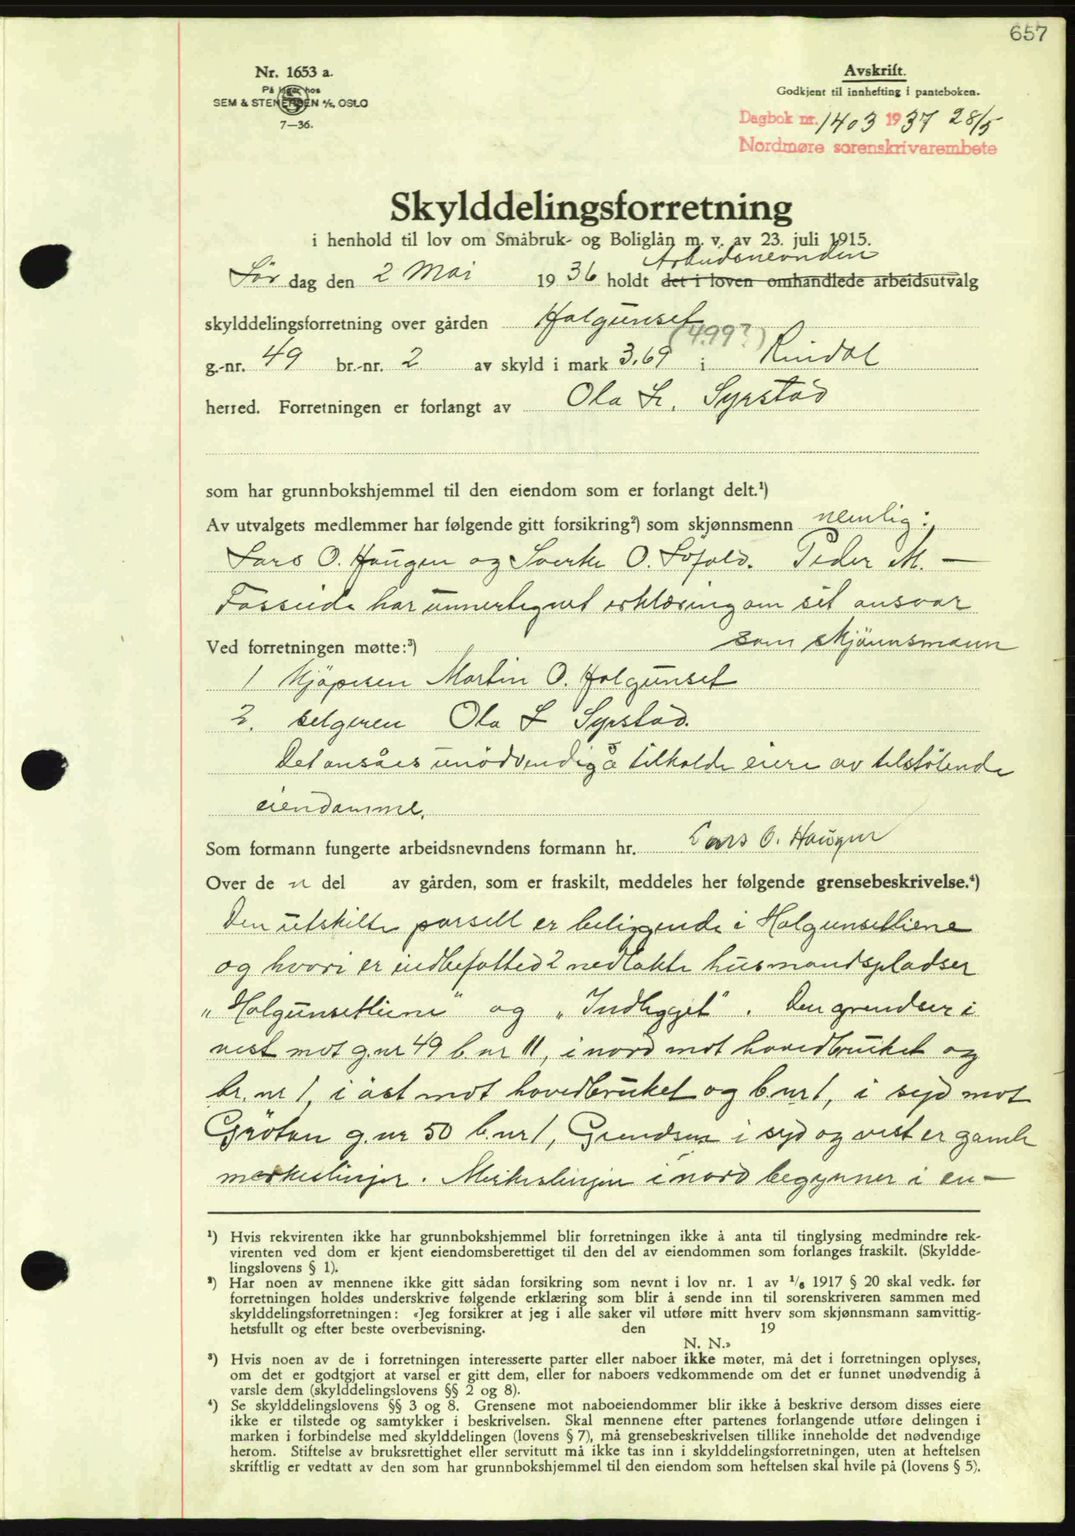 657
Nr. 1653 a.
På lager hos
SEM & STENERSEN A/S, OSLO
7—36.
Avskrift.
Godkjent til innhefting i panteboken.
Dagbok nr. 1403 1937 28/5
Nordmøre sorenskrivarembete
Skylddelingsforretning
i henhold til lov om Småbruk- og Boliglån m. v. av 23. juli 1915.
Arbeidsnevnden
Lør dag den 2 Mai 1936 holdt det i loven omhandlede arbeidsutvalg
skylddelingsforretning over gården Halgunset
(4.99?)
g.-nr. 49 br.-nr. 2 av skyld i mark 3.69 i Rindal
herred. Forretningen er forlangt av Ola L. Syrstad
som har grunnbokshjemmel til den eiendom som er forlangt delt.¹)
Av utvalgets medlemmer har følgende gitt forsikring²) som skjønnsmenn nemlig:
Lars O. Haugen og Sverke O. Løfald. Peder M. —
Fosseide har unnertegnet erklæring om sit ansvar
som skjønnsmann
Ved forretningen møtte:³)
1 Kjøperen Martin O. Halgunset
2. selgeren Ola L Syrstad.
Det ansåes unødvendig å tilkalde eiere av tilstøtende
eiendomme.
Som formann fungerte arbeidsnevndens formann hr. Lars O. Haugen
Over de n del av gården, som er fraskilt, meddeles her følgende grensebeskrivelse.⁴)
Den utskilte parsell er beliggende i Halgunsetliene
og hvori er indbefatted 2 nedlakte husmandspladser
„Halgunsetliene" og „Indlegget". Den grendser i
vest mot g.nr 49 b.nr 11, i nord mot hovedbruket og
br. nr 1, i øst mot hovedbruket og b.nr 1, i syd mot
Grøtan g.nr 50 b.nr 1, Grendsen i syd og vest er gamle
merkeslinjer. Merkeslinjen i nord begynner i en —
¹) Hvis rekvirenten ikke har grunnbokshjemmel blir forretningen ikke å anta til tinglysing medmindre rek-
virenten ved dom er kjent eiendomsberettiget til den del av eiendommen som forlanges fraskilt. (Skyldde-
lingslovens § 1).
²) Har noen av mennene ikke gitt sådan forsikring som nevnt i lov nr. 1 av ¹/₆ 1917 § 20 skal vedk. før
forretningen holdes underskrive følgende erklæring som blir å sende inn til sorenskriveren sammen med
skylddelingsforretningen: «Jeg forsikrer at jeg i alle saker vil utføre mitt hverv som skjønnsmann samvittig-
hetsfullt og efter beste overbevisning. den 19
N. N.»
³) Hvis noen av de i forretningen interesserte parter eller naboer ikke møter, må det i forretningen oplyses,
om det er godtgjort at varsel er gitt dem, eller for naboers vedkommende om det er funnet unødvendig å
varsle dem (skylddelingslovens §§ 2 og 8).
⁴) Se skylddelingslovens §§ 3 og 8. Grensene mot naboeiendommer blir ikke å beskrive dersom disses eiere
ikke er tilstede og samtykker i beskrivelsen. Skal mennene efter partenes forlangende utføre delingen i
marken i forbindelse med skylddelingen (lovens § 7), må grensebeskrivelsen tillike inneholde det nødvendige
herom. Stiftelse av bruksrettighet eller servitutt må ikke tas inn i skylddelingsforretningen, uten at heftelsen
skriftlig er vedtatt av den som har grunnbokshjemmel til den eiendom som heftelsen skal hvile på (lovens § 5).